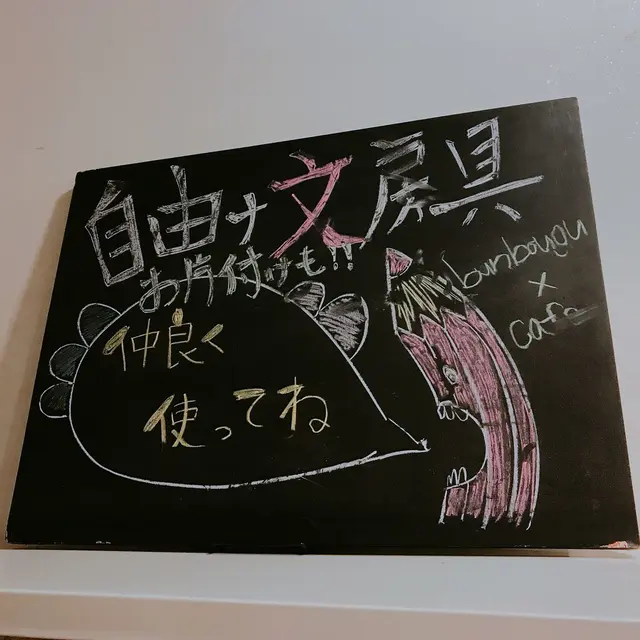 自由ナ文房具
お片付けも!!
仲良く
使ってね
bunbougu
×
Cafe